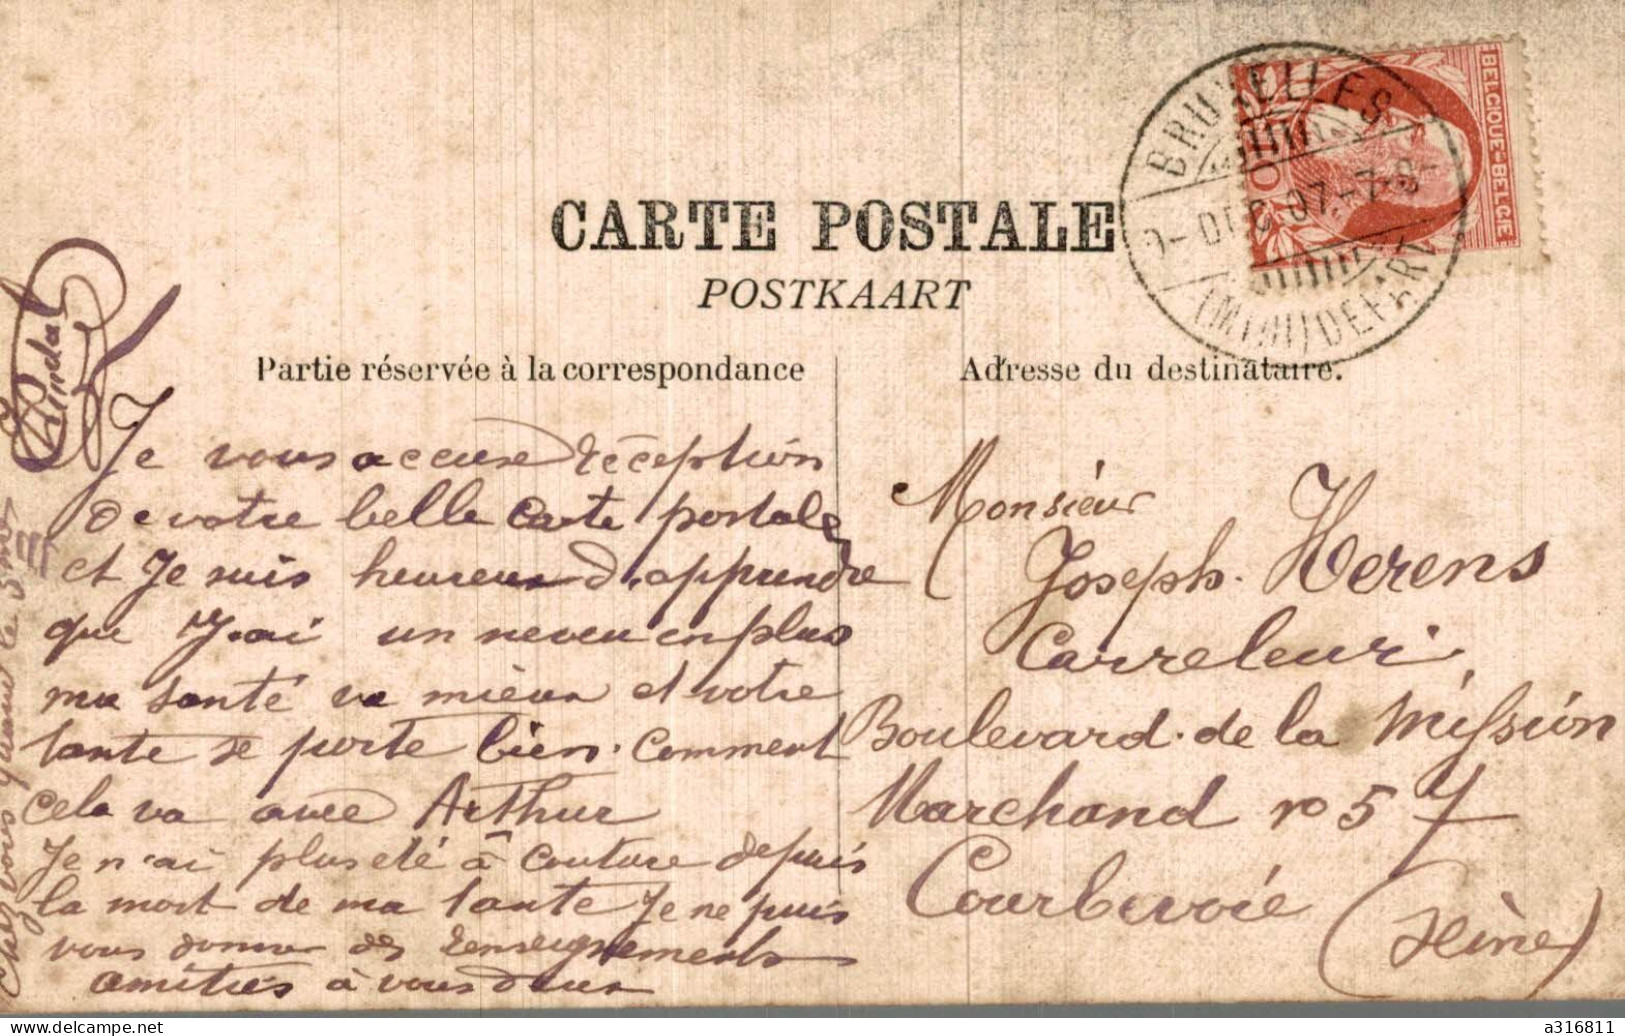 CARTE POSTALE
POSTKAART
Partie réservée à la correspondance
Adresse du destinataire.
BRUXELLES
DEC 07
(MIDI) DEPART
BELGIQUE-BELGIE
Je vous accuse réception
de votre belle carte postale
et Je suis heureux d'apprendre
que J'ai un neveu en plus
ma santé va mieux et votre
tante se porte bien. Comment
cela va avec Arthur
Je n'ai plus été à couture depuis
la mort de ma tante Je ne puis
vous donner des renseignements
amitiés à vous deux
chez vous quand le 3me
Monsieur
Joseph. Herens
Carreleur
Boulevard. de la Mission
Marchand no 57
Courbevoie
(Seine)
www.delcampe.net
a316811